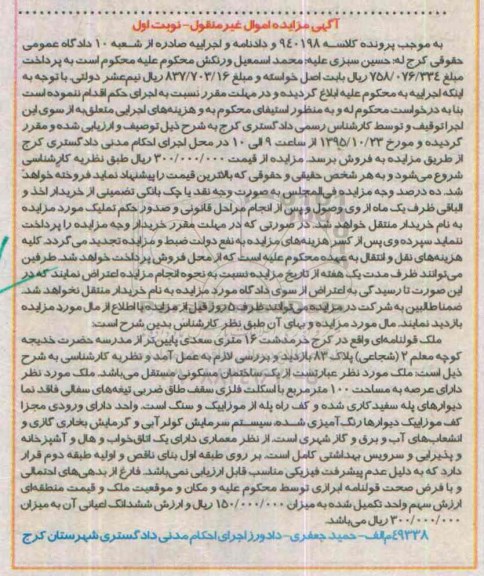 آگهی مزایده اموال غیرمنقول - نوبت اول
به موجب پرونده کلاسه ۹٤۰۱۹۸ و دادنامه و اجراییه صادره از شعبه ۱۰ دادگاه عمومی
حقوقی کرج له: حسین سبزی علیه: محمد اسمعیل ورنکش محکوم علیه محکوم است به پرداخت
مبلغ ۷۵۸/۰۷۶/۳۳٤ ریال بابت اصل خواسته و مبلغ ۸۳۷/۷۰۳/۱۶ ریال نیم‌عشر دولتی. با توجه به
اینکه اجراییه به محکوم علیه ابلاغ گردیده و در مهلت مقرر نسبت به اجرای حکم اقدام ننموده است
بنا به درخواست محکوم له و به منظور استیفای محکوم به و هزینه‌های اجرایی متعلق‌به از سوی این
اجرا توقیف و توسط کارشناس رسمی دادگستری کرج به شرح ذیل توصیف و ارزیابی شده و مقرر
گردیده و مورخ ۱۳۹۵/۱۰/۲۳ از ساعت ۹ الی ۱۰ در محل اجرای احکام مدنی دادگستری کرج
از طریق مزایده به فروش برسد. مزایده از قیمت ۳۰۰/۰۰۰/۰۰۰ ریال طبق نظریه کارشناسی
شروع می‌شود و به هر شخص حقیقی و حقوقی که بالاترین قیمت را پیشنهاد نماید فروخته خواهد
شد. ده درصد وجه مزایده فی‌المجلس به صورت وجه نقد یا چک بانکی تضمینی از خریدار اخذ و
الباقی ظرف یک ماه از وی وصول و پس از انجام مراحل قانونی و صدور حکم تملیک مورد مزایده
به نام خریدار منتقل خواهد شد. در صورتی که در مهلت مقرر خریدار وجه مزایده را پرداخت
ننماید سپرده وی پس از کسر هزینه‌های مزایده به نفع دولت ضبط و مزایده تجدید می‌گردد. کلیه
هزینه‌های نقل و انتقال به عهده محکوم علیه است که از محل فروش پرداخت خواهد شد. طرفین
می‌توانند ظرف مدت یک هفته از تاریخ مزایده نسبت به نحوه انجام مزایده اعتراض نمایند که در
این صورت تا رسیدگی به اعتراض از سوی دادگاه مورد مزایده به نام خریدار منتقل نخواهد شد.
ضمنا طالبین به شرکت در مزایده می‌توانند ظرف ۵ روز قبل از مزایده با اطلاع از مال مورد مزایده
بازدید نمایند. مال مورد مزایده و بهای آن طبق نظر کارشناس بدین شرح است:
ملک قولنامه‌ای واقع در کرج حرمدشت ۱۶ متری سعدی پایین‌تر از مدرسه حضرت خدیجه
کوچه معلم ۲ (شجاعی) پلاک ۸۳ بازدید و بررسی لازم به عمل آمد و نظریه کارشناسی به شرح
ذیل است: ملک مورد نظر عبارتست از یک ساختمان مسکونی مستقل می‌باشد. ملک مورد نظر
دارای عرصه به مساحت ۱۰۰ متر مربع با اسکلت فلزی سقف طاق ضربی تیغه‌های سفالی فاقد نما
دیوارهای پله سفیدکاری شده و کف راه پله از موزاییک و سنگ است. واحد دارای ورودی مجزا
کف موزاییک دیوارها رنگ‌آمیزی شده، سیستم سرمایش کولر آبی و گرمایش بخاری گازی و
انشعاب‌های آب و برق و گاز شهری است. از نظر معماری دارای یک اتاق‌خواب و هال و آشپزخانه
و پذیرایی و سرویس بهداشتی کامل است. بر روی طبقه اول بنای ناقص و اولیه طبقه دوم قرار
دارد که به دلیل عدم پیشرفت فیزیکی مناسب قابل ارزیابی نمی‌باشد. فارغ از بدهی‌های احتمالی
و با فرض صحت قولنامه ابرازی توسط محکوم علیه و مکان و موقعیت ملک و قیمت منطقه‌ای
ارزش سهم واحد تکمیل شده به میزان ۱۵۰/۰۰۰/۰۰۰ ریال و ارزش ششدانگ اعیانی آن به میزان
۳۰۰/۰۰۰/۰۰۰ ریال می‌باشد.
٤۹۳۳۸م‌الف - حمید جعفری - دادورز اجرای احکام مدنی دادگستری شهرستان کرج